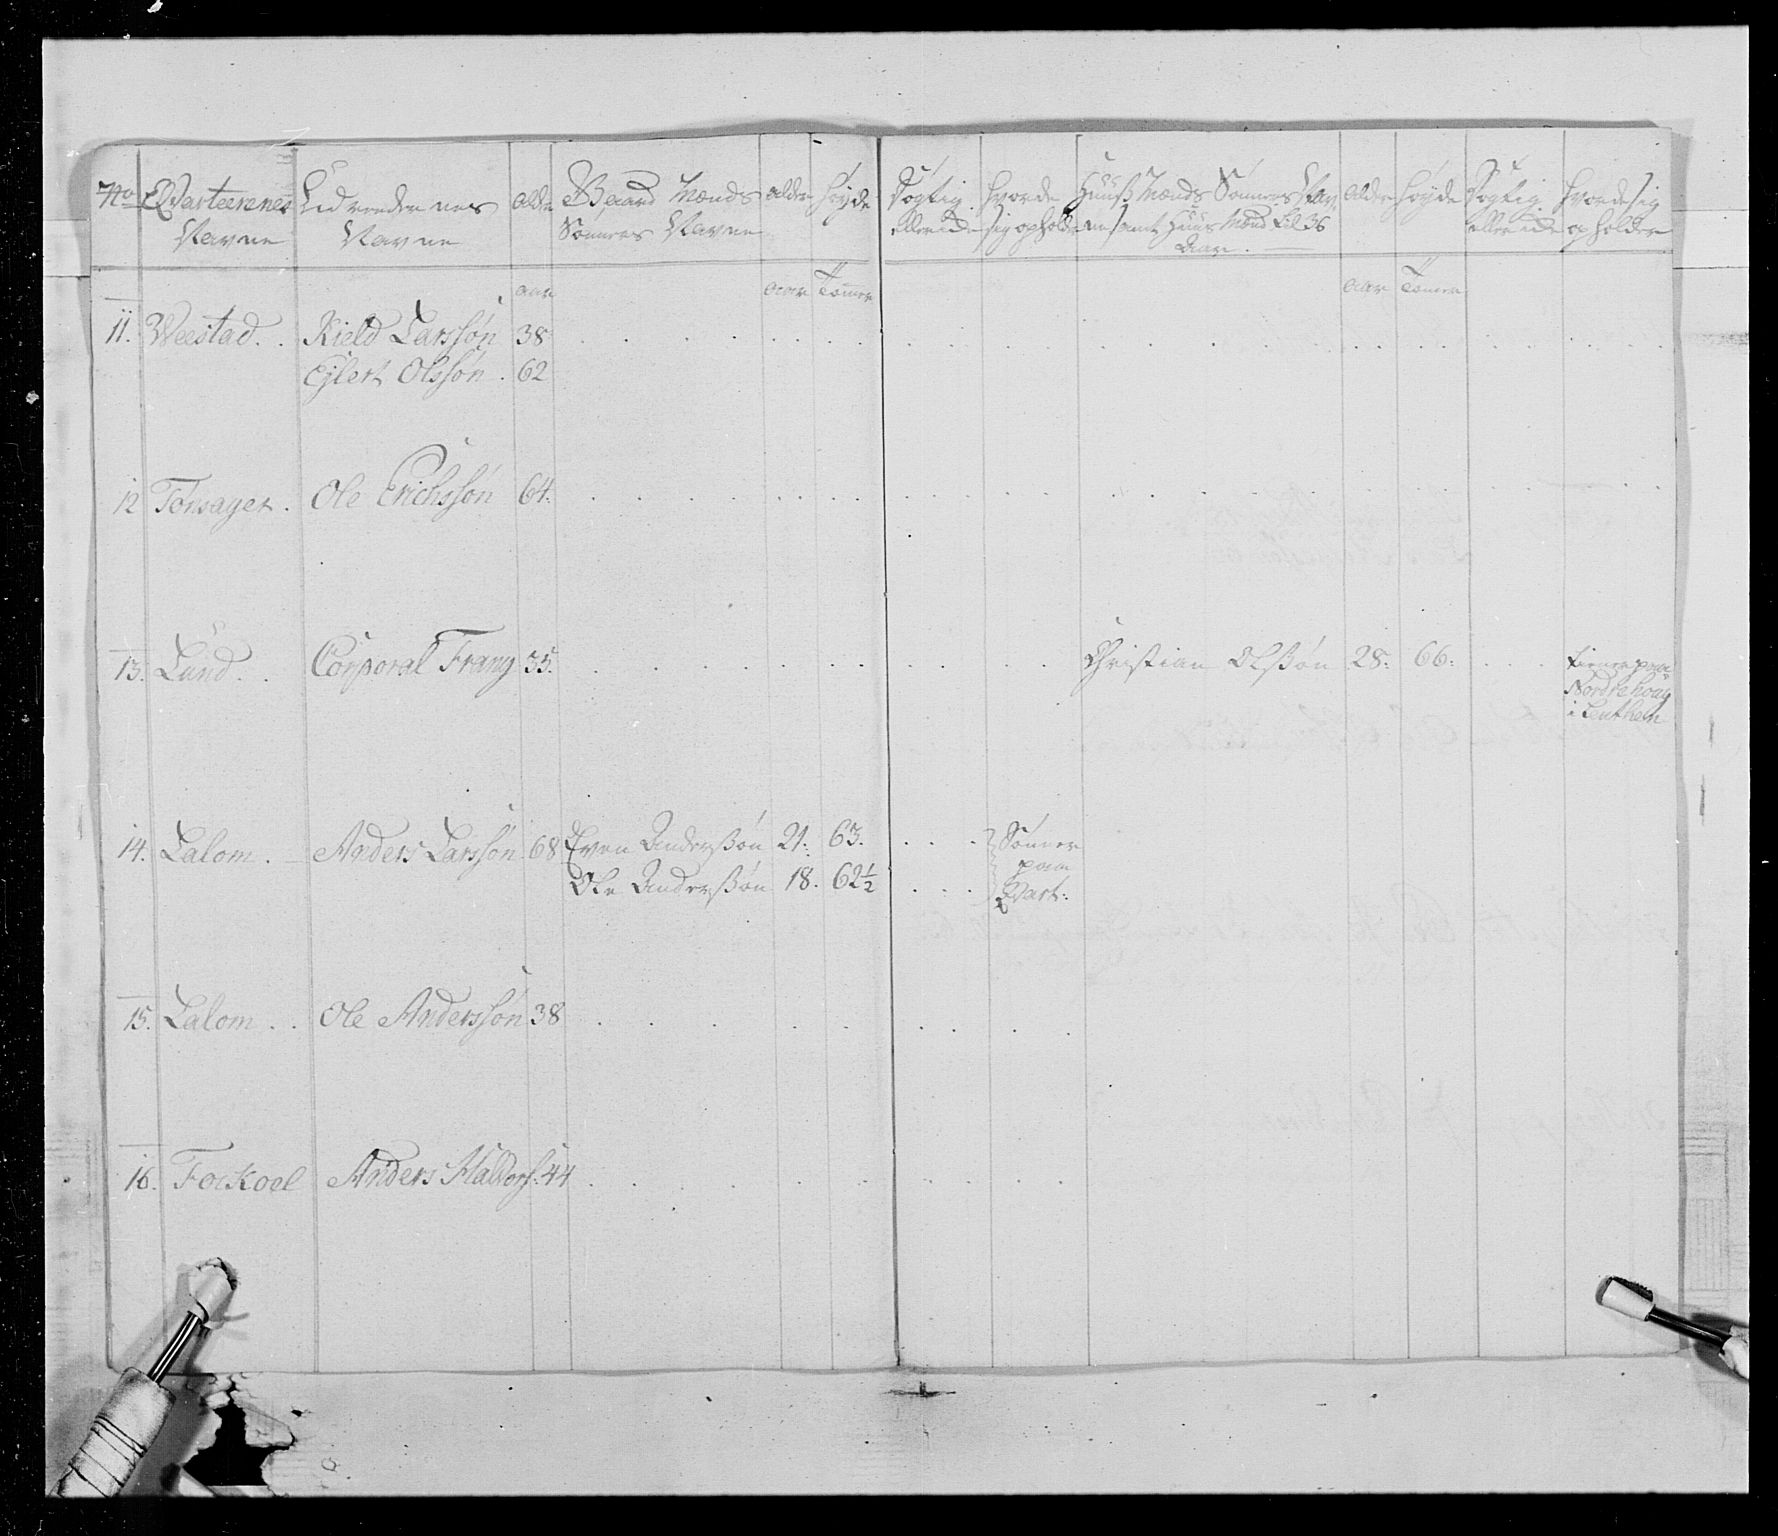 No Qvarteerenes Navne | Lidveedernes Navne | Alder | Gaard Mænds Sønners Navne | Alder | Høyde | Dygtig eller ide | Hvorde sig opholder | Huuß Mænds Sønners Nav ne samt Huus Mænd til 36 Aar. | Alder | Høyde | Dygtig eller ide | Hvorde sig opholder
Aar | Aar | Tomer | Aar | Tomer
11. Weestad. . Kield Larssøn 38
Ejlert Olssøn . 62
12 Tonsager . Ole Erichssøn 64.
13. Lund. . Corporal Frang 35. Christian Olßøn 28: 66: tiener paa
Nordrehoug
i Leuthen
14. Lalom . Anders Larssøn 68 Even Anderßøn 21: 63. . . . Sønner
paa
Ole Anderßøn 18. 62½ . . . Qvart:
15. Lalom . . Ole Anderssøn 38
16. Forkoel Anders Haldors: 44